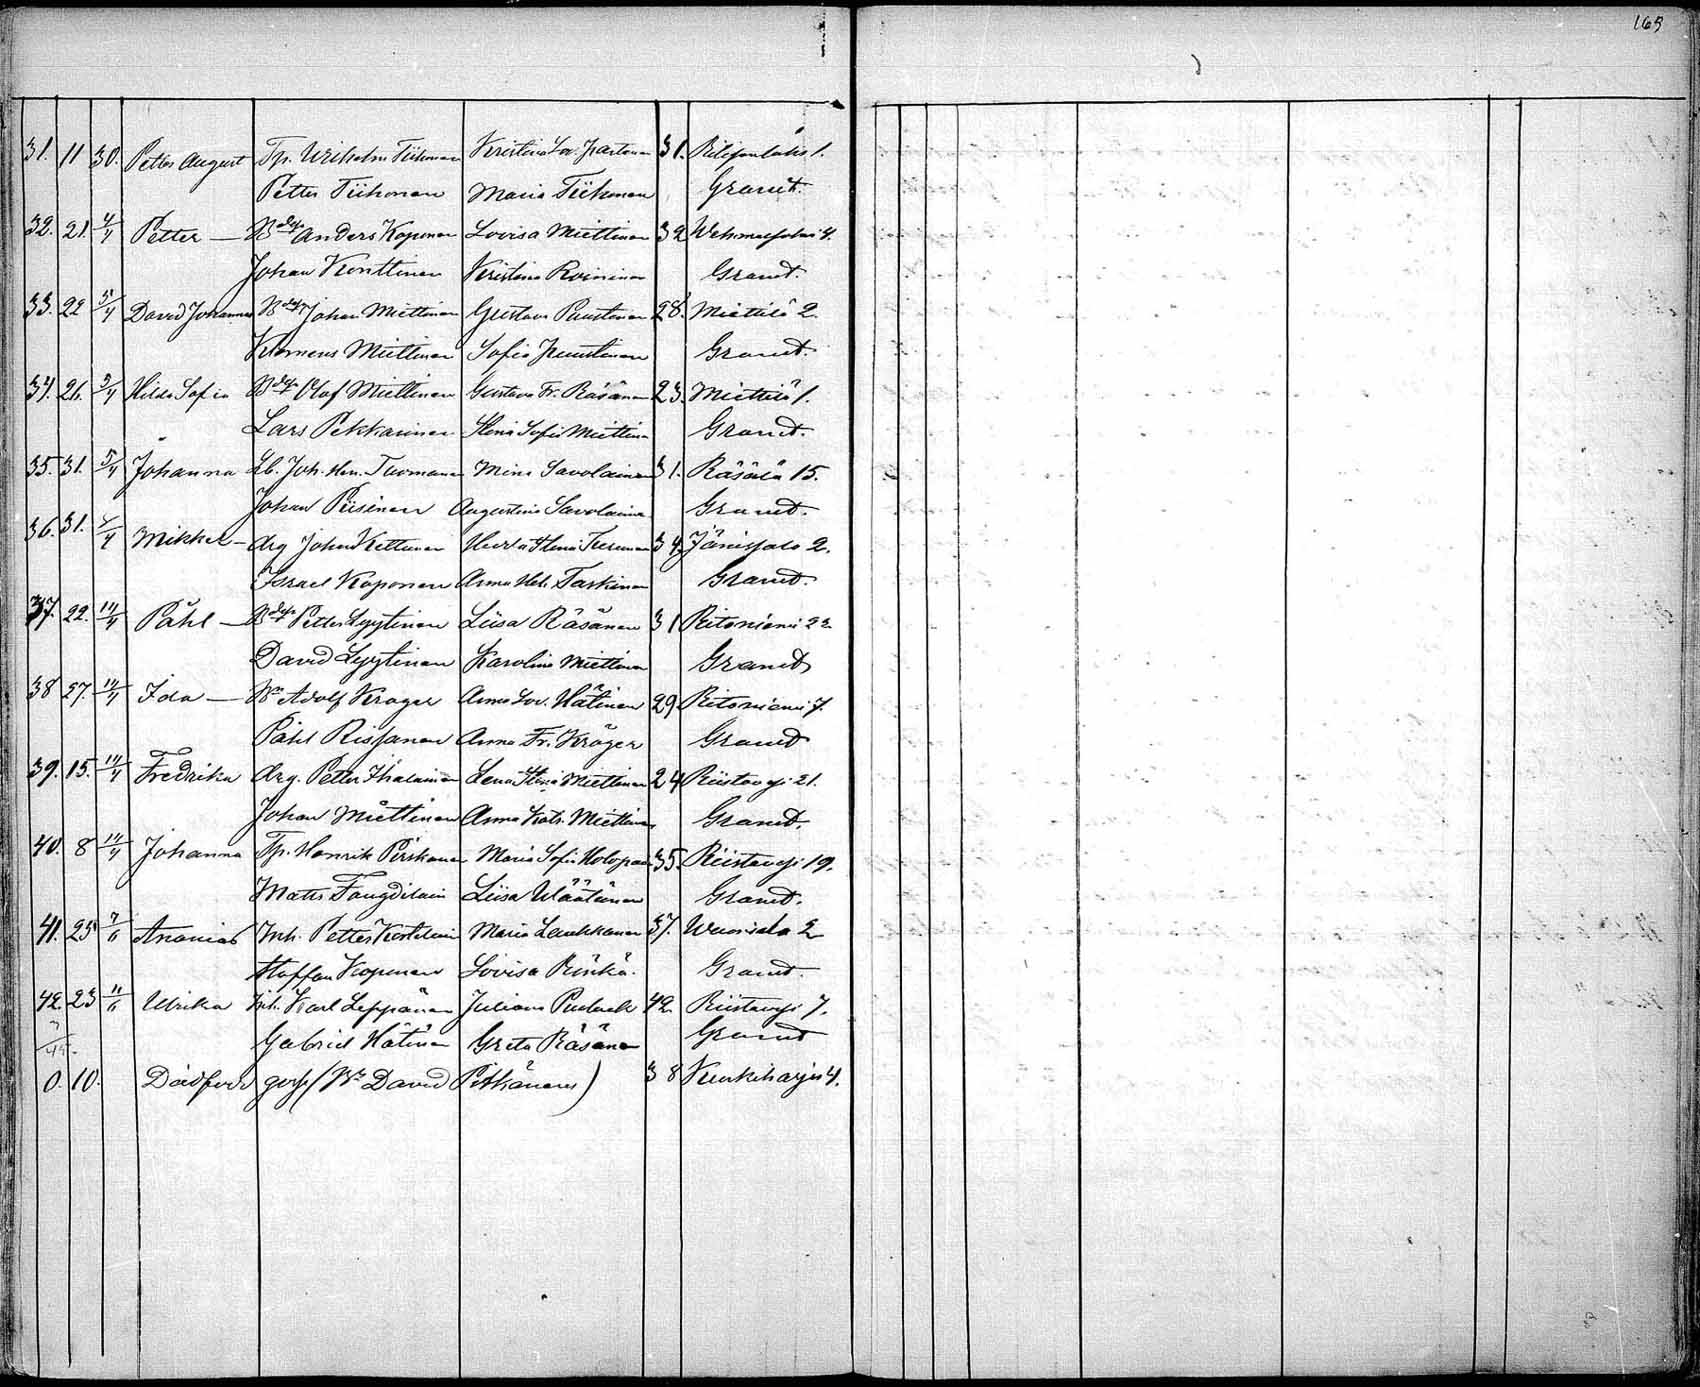 165
31. 11 30. Petter August Tp. Wilhelm Tiihonen Kristina Lov. 31. 1.
Petter Tiihonen Maria Tiihonen Granit.
32. 21. 4/4 Petter — Anders Koponen Lovisa Miettinen 32 4.
Johan Konttinen Kristina Roininen Granit.
33. 22 5/4 David Johannes Johan Miettinen Gustava 28. Miettilä 2.
Klemens Miettinen Sofia Granit.
34. 26. 5/4 Hilda Sofia Olof Miettinen Gustava Fr. Räsänen 23. Miettilä 1.
Lars Pekkarinen Stina Sofia Miettinen Granit.
35. 31. 5/4 Johanna Lb. Joh. Hen. Tuomainen Mina Savolainen 31. Räsälä 15.
Johan Piisinen Augustina Savolainen Granit.
36. 31. /4 Mikkel — Arg Johan Kettunen Stina 34. Jänissalo 2.
Israel Koponen Anna Hel. Taskinen Granit.
37. 22. 14/4 Påhl — Petter Lyytinen Liisa Räsänen 31 Ritoniemi 22
David Lyytinen Karolina Miettinen Granit
38 27. 14/4 Ida — Adolf Kröger Anna Lov. Hätinen 29. Ritoniemi 7.
Påhl Rissanen Anna Fr. Kröger Granit
39. 15. 14/4 Fredrika Arg. Petter Ihalainen Lena Stina Miettinen 24 Riistavesi 21.
Johan Miettinen Anna Katr. Miettinen Granit.
40. 8 14/4 Johanna Tp. Henrik Pirskanen Maria Sofia Holopainen 35. Riistavesi 19.
Matts Liisa Väätäinen Granit.
41. 25 7/6 Ananias Inh. Petter Maria Laukkanen 37. 2
Staffan Koponen Lovisa Granit.
42. 23 11/6 Ulrika Inh. Karl Leppänen Juliana 42 Riistavesi 7.
7/45. Gabriel Hätinen Greta Räsänen Granit
0. 10. Dödfödd goss (David Pitkänens) 38 Kurkiharju 4.